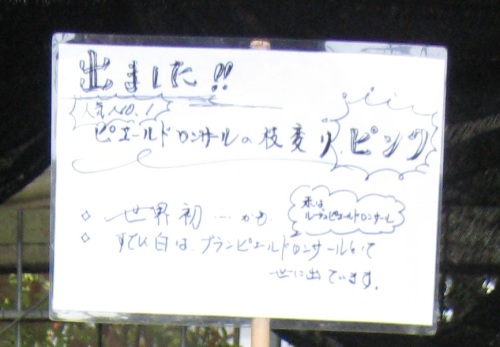 出ました!!
人気No.1
ピエールドロンサールの枝変り ピンク
◇ 世界初…かも
赤は
ルージュピエールドロンサール
◇ すでに白は、ブランピエールドロンサールとして
世に出ています。